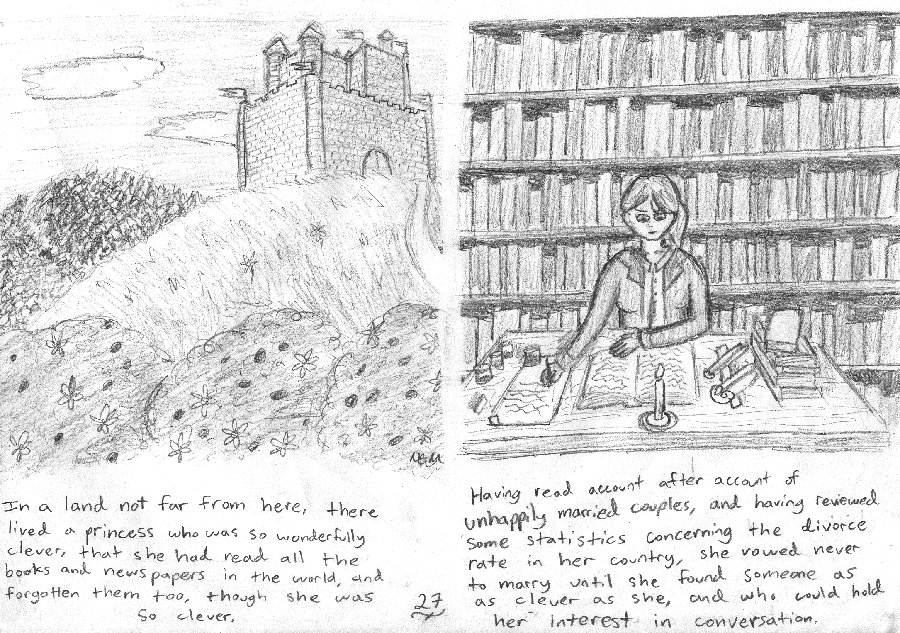 M&M
In a land not far from here, there
lived a princess who was so wonderfully
clever, that she had read all the
books and newspapers in the world, and
forgotten them too, though she was
so clever.
27
Having read account after account of
unhappily married couples, and having reviewed
some statistics concerning the divorce
rate in her country, she vowed never
to marry until she found someone as
as clever as she, and who could hold
her interest in conversation.